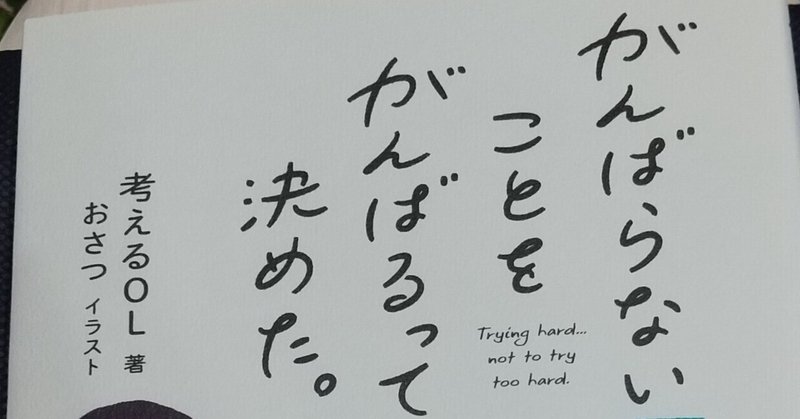 がんばらない
ことを
がんばるって
決めた。
Trying hard...
not to try
too hard.
考えるOL 著
おさつ イラスト